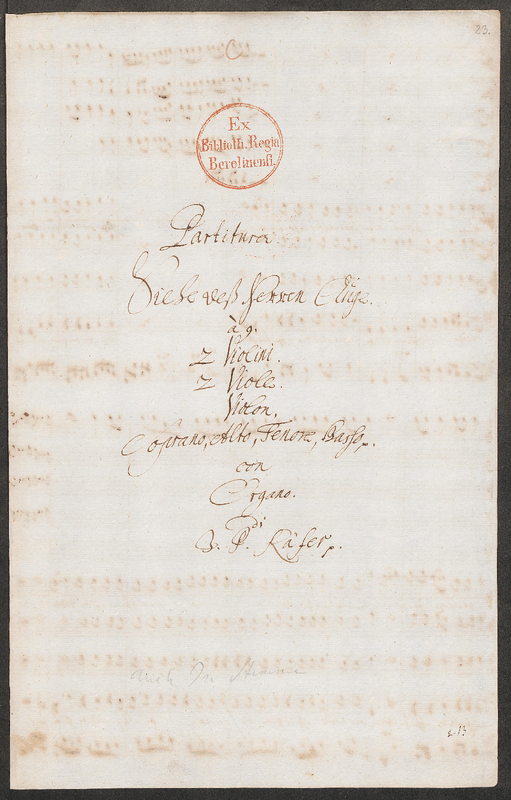 23.
Ex
Biblioth. Regia
Berolinensi.
Partitura
Siehe deß Herren Auge.
à 9.
2 Violini.
2 Viole.
Violon.
Soprano, Alto, Tenore, Basso,
con
Organo.
di
Käser